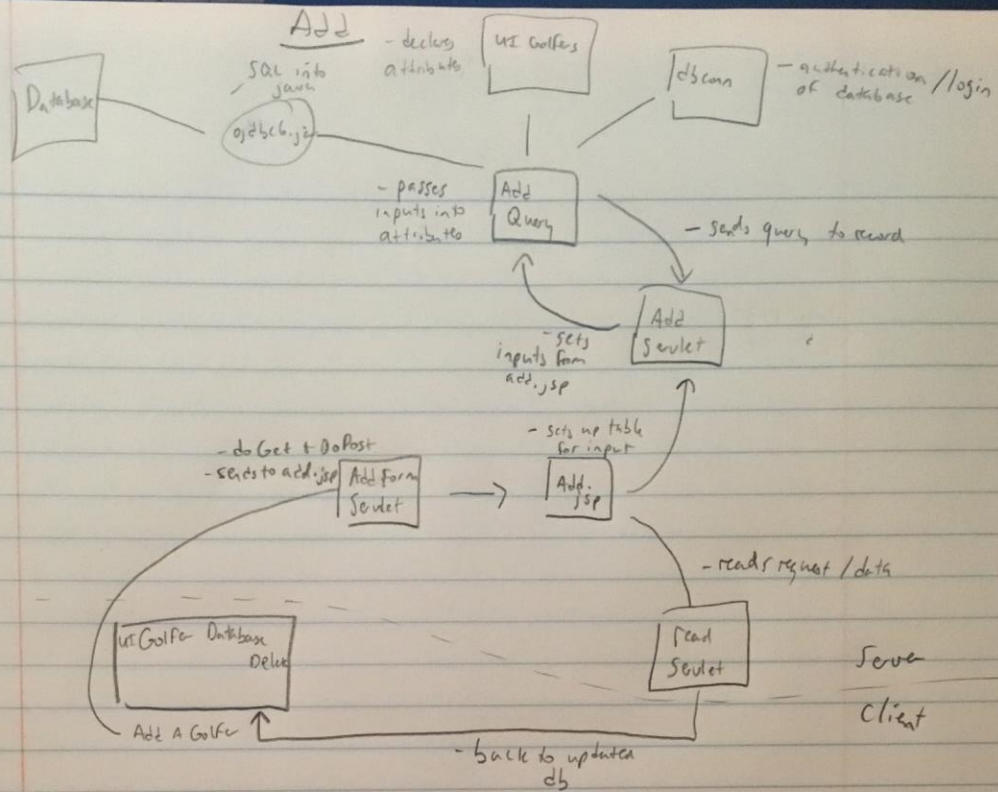 Add
- declares
attributes
UI Golfers
dbconn
- authentication/login
of database
Database
SQL into
java
ojdbc6.jar
- passes
inputs into
attributes
Add
Query
- sends query to record
Add
Servlet
- sets
inputs from
add.jsp
- doGet + DoPost
- sends to add.jsp
Add Form
Servlet
- sets up table
for input
Add.
jsp
- reads request / data
UI Golfer Database
read
Servlet
Server
Client
Add A Golfer
- back to updated
db